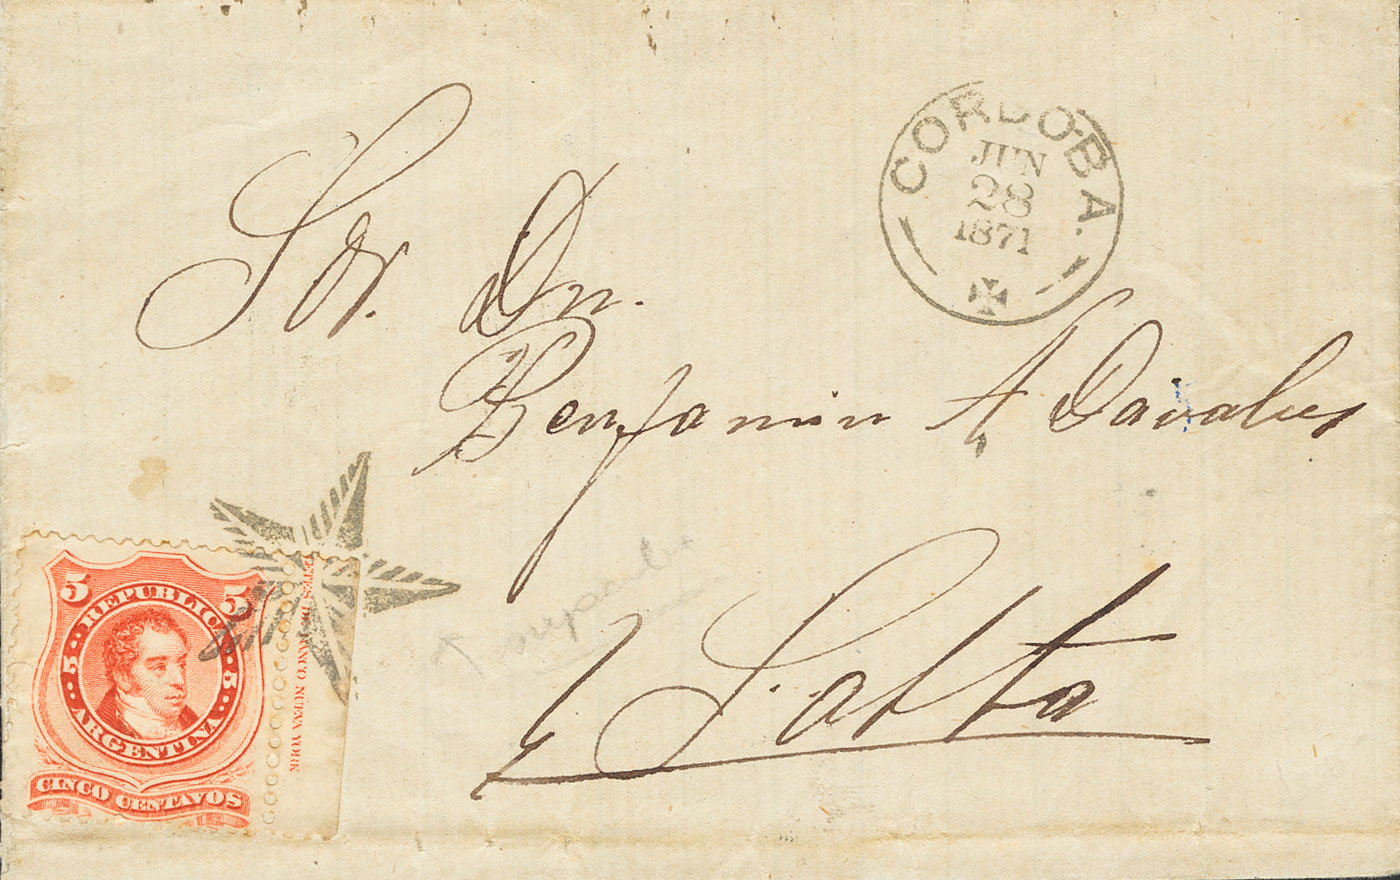 CORDOBA.
JUN
28
1871
Sor. Dn.
Benjamin A Davalos
Salta
5 5
REPUBLICA
5 5
ARGENTINA
CINCO CENTAVOS
BANCO NUEVA YORK